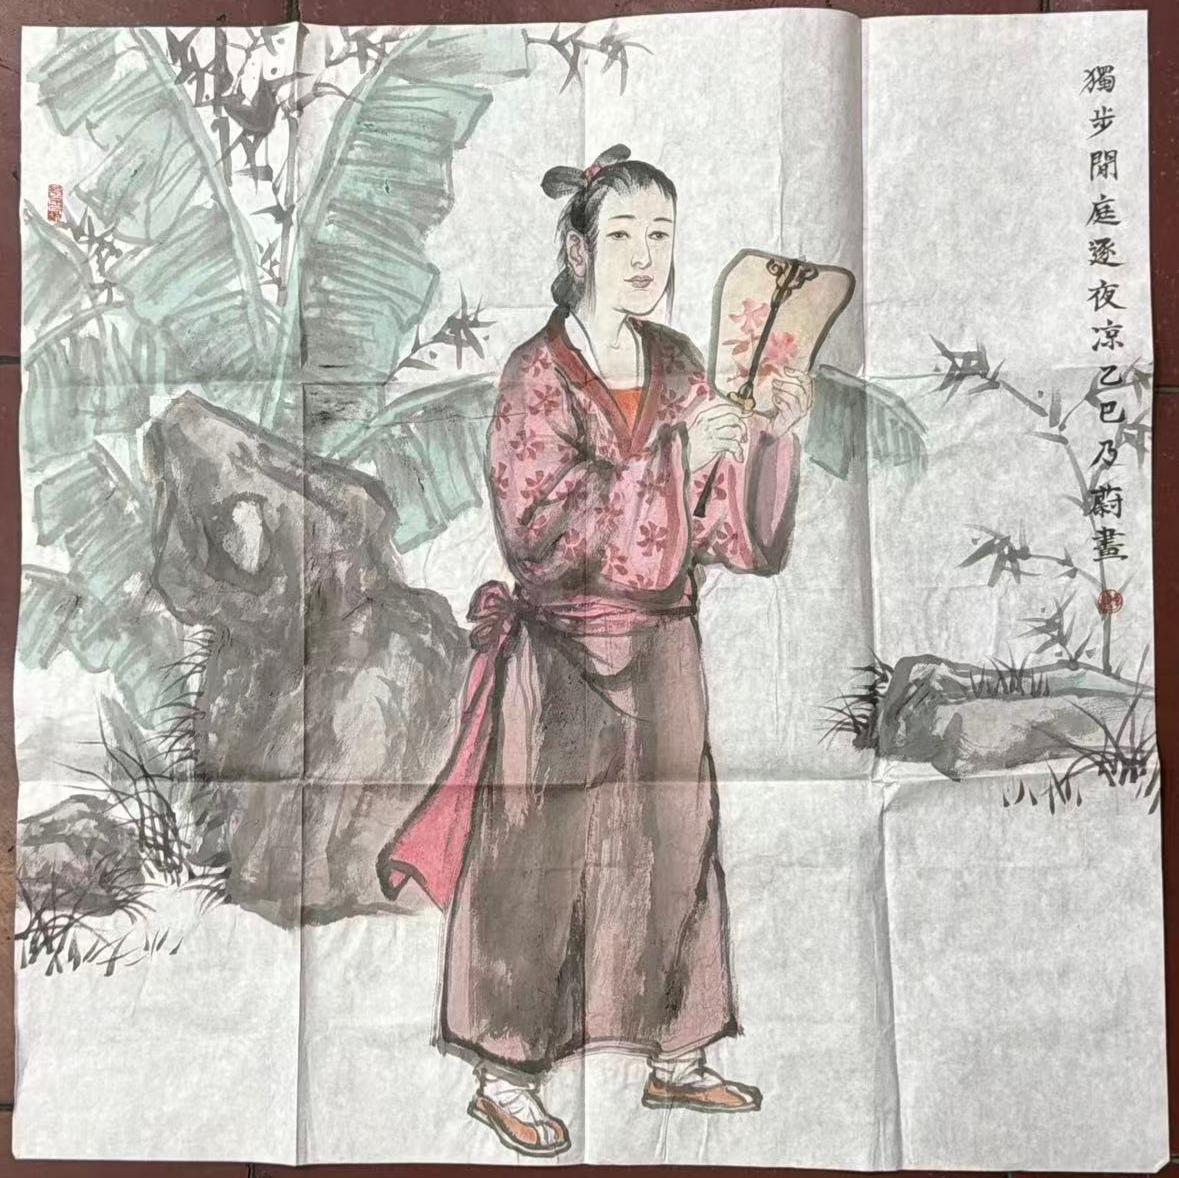 獨步閒庭逐夜凉乙巳乃蔚畫